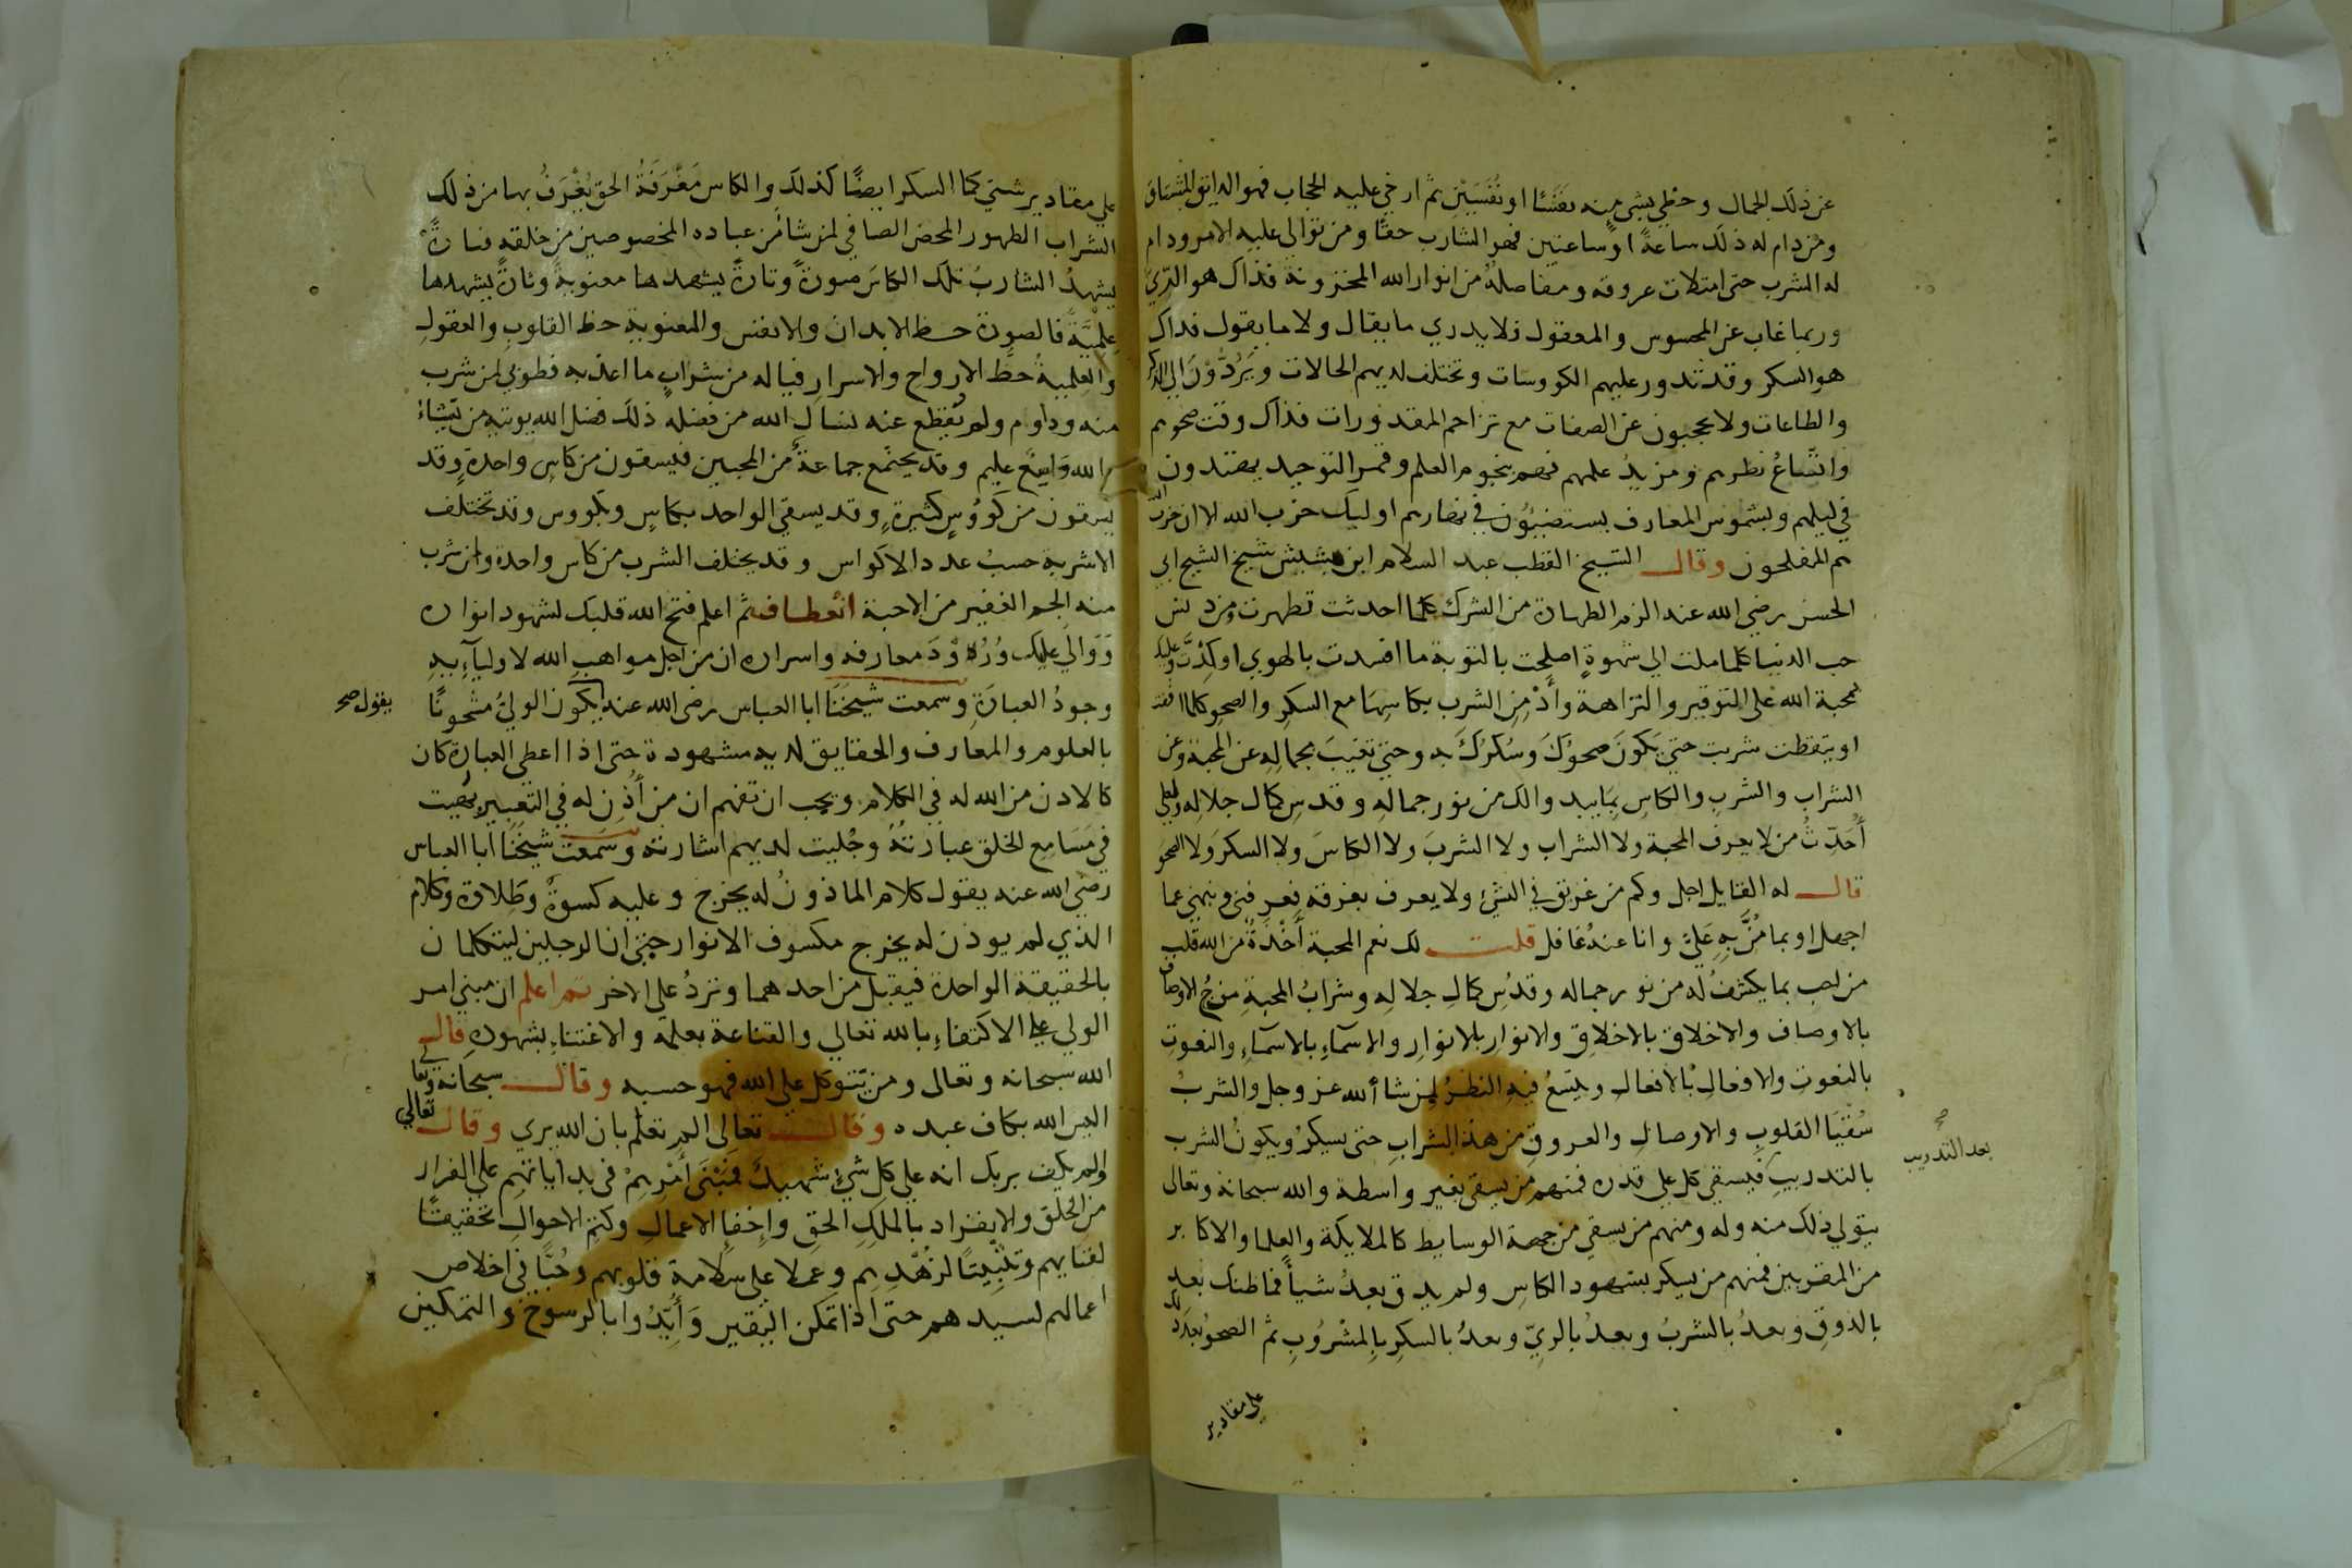 عن ذلك الجمال وحظي بشي منه نفسًا او نفسين ثم ارخي عليه الحجاب فهو الذايق المشتاق
ومن دام له ذلك ساعةً او ساعتين فهو الشارب حقًا ومن توالى عليه الامر ودام
له الشرب حتى امتلات عروقه ومفاصله من انوار الله المخزونة فذاك هو الري
وربما غاب عن المحسوس والمعقول فلا يدري ما يقال ولا ما يقول فذاك
هو السكر وقد تدور عليهم الكووسات وتختلف لديهم الحالات ويَرُدُّوْنَ الي الذكر
والطاعات ولا يحجبون عن الصفات مع تزاحم المقدورات فذاك وقت صحوهم
واتساعُ نظرهم ومزيدُ علمهم فهم بنجوم العلم وقمر التوحيد يهتدون
في ليلهم وبشموس المعارف يستضيئون في نهارهم اوليك حزب الله الا ان حزب الله
هم المفلحون وقال الشيخ القطب عبد السلام ابن مشيش شيخ الشيخ ابي
الحسن رضي الله عنه الزم الطهارة من الشرك كلما احدثت تطهرت ومن دنس
حب الدنيا كلما ملت الي شهوةٍ اصلحت بالتوبة ما افسدت بالهوي او كِدْتَّ وعليك
بمحبة الله على التوقير والنزاهة وأَدْمِنِ الشرب بكاسِهَا مع السكرِ والصحوِ كلما افقت
او تيقظت شربت حتي يكونَ صحوُكَ وسُكرُكَ به وحتي تغيبَ بجمالِهِ عن المحبة وعن
الشراب والشربِ والكاسِ بما يبد والك من نور جماله وقدسِ كمال جلاله ولعلي
أُحَدِّثُ من لا يعرف المحبة ولا الشراب ولا الشربَ ولا الكاسَ ولا السكرَ ولا الصحو
قال له القايل اجل وكم من غريق في الشيء ولا يعرف بغرقه فعرفني ونبهني عما
اجهل او بما مُنَّ بهِ عَلَيَّ وانا عنهُ غافل قلت لك نعم المحبة أَخْذَةٌ من الله قلب
من احب بما يكشفُ له من نور جماله وقدُسِ كمالِ جلالِهِ وشرابُ المحبةِ مزجُ الاوصاف
بالاوصاف والاخلاق بالاخلاقِ والانوارِ بالانوارِ والاسمآءِ بالاسمآءِ والنعوتِ
بالنعوت والافعالِ بالافعالِ ويتسعُ فيهِ النظرُ لمن شا الله عز وجل والشربُ
سُقْيَا القلوبِ والاوصالِ والعروقِ من هذا الشرابِ حتى يسكرُ ويكونُ الشرب
بالتدريبِ فيسقى كل علي قدره فمنهم من يسقى بغير واسطة والله سبحانه وتعالى
يتولي ذلك منه وله ومنهم من يسقى من جهة الوسايط كالملايكة والعلما والاكابر
من المقربين فمنهم من يسكر بشهود الكاسِ ولم يذق بعدُ شيأً فما ظنك بعد
بالذوقِ وبعدُ بالشربُ وبعدُ بالريِّ وبعدُ بالسكرِ بالمشروبِ ثم الصحوُ بعد ذلك
بعد التدريب صح
علي مقادير
علي مقادير شتي كما السكر ايضًا كذلك والكاس مَغْرَفَةُ الحق يُغْرَفُ بها من ذلك
الشراب الطهور المحض الصافي لمن شا من عباده المخصوصين من خلقه فتارةً
يشهدُ الشاربُ تلك الكاسَ صورةً وتارةً يشهدها معنويةً وتارةً يشهدها
عِلْمِيَّةً فالصورة حظ الابدان والانفس والمعنوية حظ القلوبِ والعقولِ
والعلميةُ حظُّ الارواحِ والاسرارِ فيا له من شرابٍ ما اعذبه فطوبي لمن شرب
منه وداوم ولم يُقطع عنه نسال الله من فضله ذلك فضل الله يوتيه من يَّشاءُ
والله وَاسِعٌ عليم وقد يجتمع جماعةٌ من المحبين فيسقون من كاسٍ واحدةٍ وقد
يسقون من كَوُوسٍ كثيرةٍ وقد يسقي الواحد بكاسٍ وبكووس وقد تختلف
الاشربة حسبُ عدد الاكواس وقد يختلف الشرب من كاس واحدة وان شرب
منه الجم الغفير من الاحبة انعطاف ثم اعلم فتح الله قلبك لشهود انواره
وَوَالَي عليك وُرُوْدَ معارفه واسراره ان من اجلِ مواهبِ الله لاوليآءِيهِ
وجودُ العبارَةِ وسمعت شيخَنَا ابا العباس رضي الله عنه يكون الوليُّ مشحونًا
يقول صح
بالعلوم والمعارف والحقايق لديه مشهودة حتى اذا اعطى العبارة كان
كالاذن من الله له في الكلام ويجب ان تفهم ان من أُذِن له في التعبيرِ بُهيت
في مَسَامِعِ الخلق عبارتُهُ وجُليت لديهم اشارته وسَمعت شيخَنَا ابا العباس
رضي الله عنه يقول كلام الماذونُ له يخرج وعليه كسوةٌ وطِلاوة وكلام
الذي لم يوذن له يخرج مكسوف الانوار حتي ان الرجلين ليتكلمان
بالحقيقة الواحدة فيقبل من احدهما وتردُ على الاخر ثم اعلم ان مبني امر
الولي علي الاكتفاءِ بالله تعالي والقناعة بعلمه والاغتناءِ بشهودهِ قال
الله سبحانه وتعالى ومن يَّتوكل علي الله فهو حسبه وقال سبحانه وتعالي
اليس الله بكاف عبده وقال تعالى الم تعلم بان الله يري وقال تعالي
اولم يكف بربك انه علي كل شيءٍ شهيدٌ فَمَبْنَى أَمْرِهِمْ في بداياتهِم علي الفرار
من الخلق والانفراد بالملكِ الحقِ وإخفاءِ الاعمالِ وكتمِ الاحوالِ تحقيقًا
لفنايهم وتثبيتًا لزُهْدِهم وعملا على سلامة قلوبهم وحُبًّا في اخلاص
اعمالهم لسيدهم حتى اذا تمكن اليقين وَأُيِّدُوا بالرسوخ والتمكين